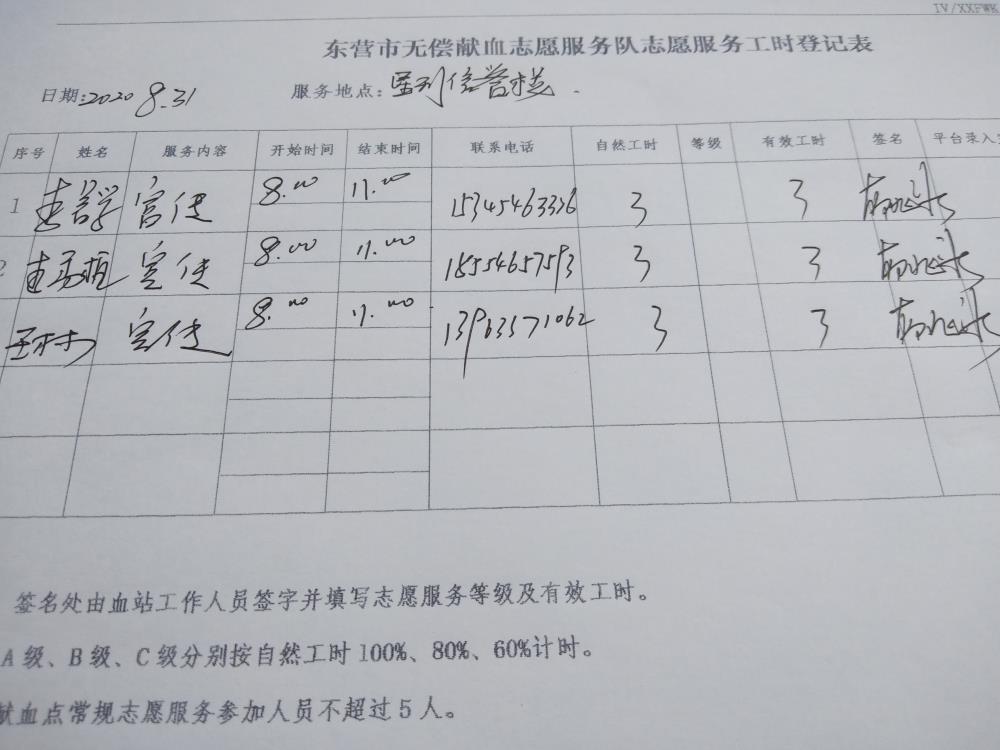 IV/XXFWK
东营市无偿献血志愿服务队志愿服务工时登记表
日期:2020 8.31 服务地点:
序号 姓名 服务内容 开始时间 结束时间 联系电话 自然工时 等级 有效工时 签名 平台录入
1 宣传 8.00 11.00 15345463336 3 3
2 宣传 8.00 11.00 18554657593 3 3
王林 宣传 8.00 11.00 13963571062 3 3
签名处由血站工作人员签字并填写志愿服务等级及有效工时。
A级、B级、C级分别按自然工时100%、80%、60%计时。
献血点常规志愿服务参加人员不超过5人。